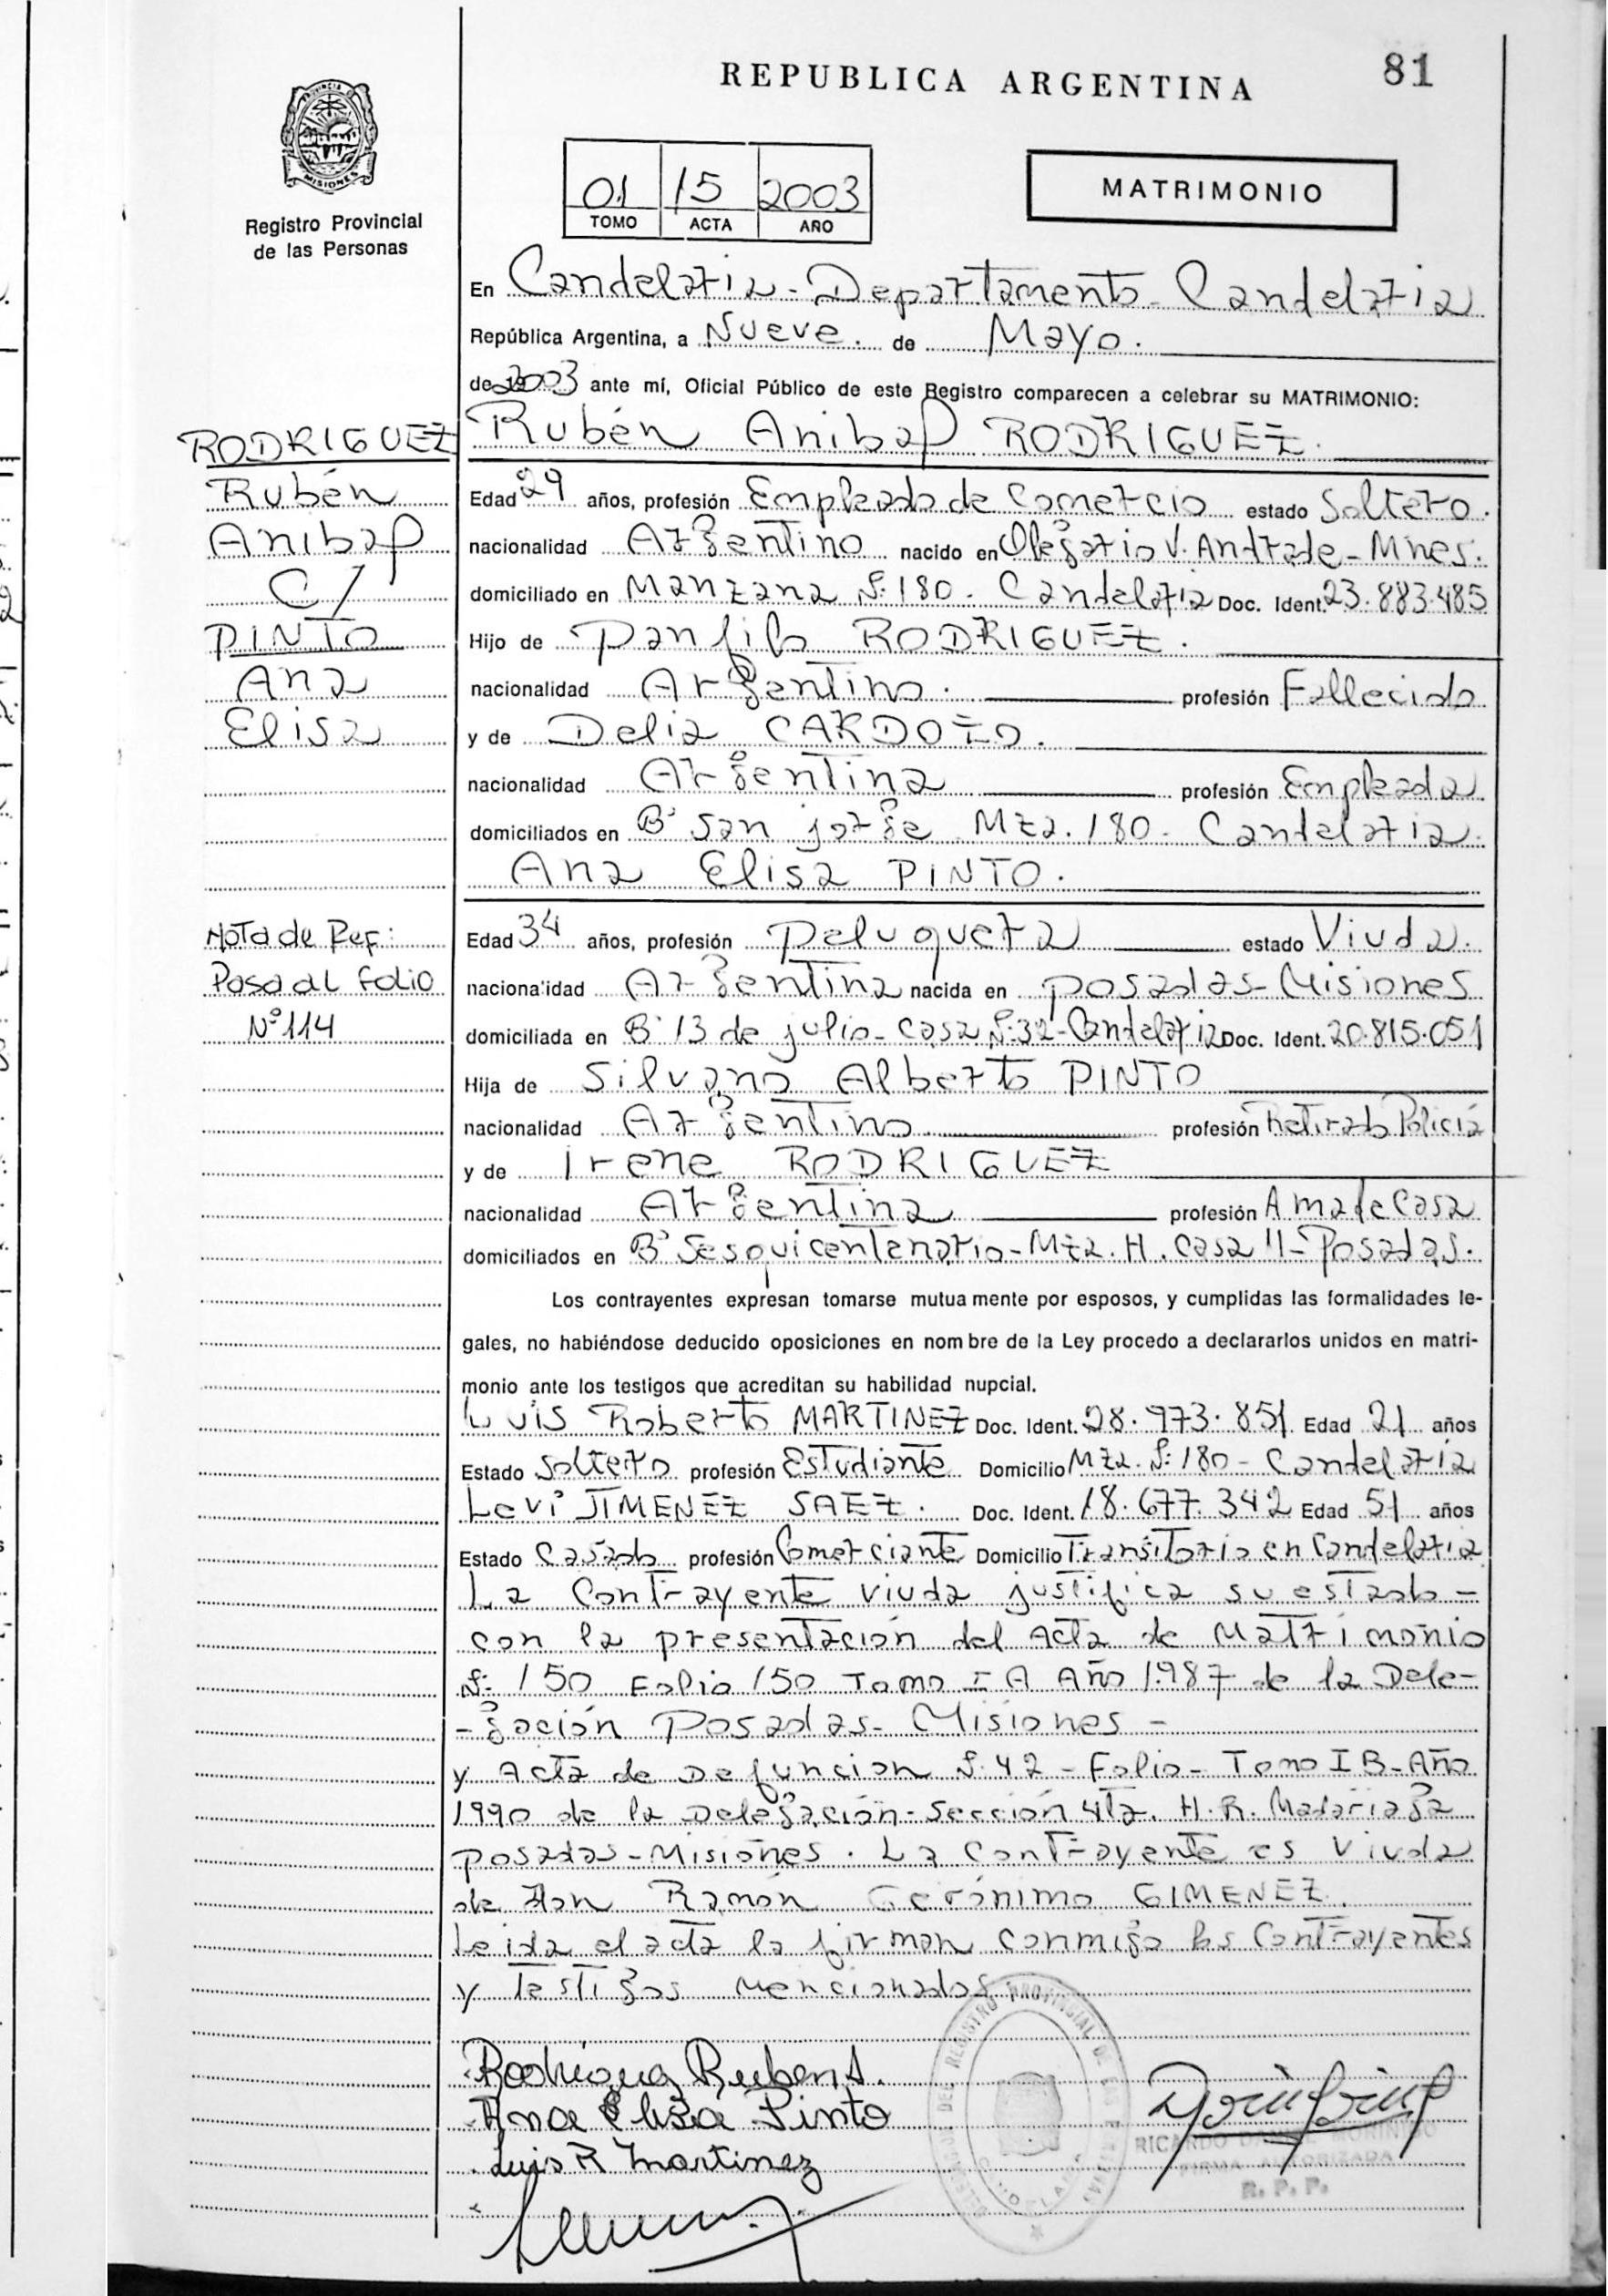 81
REPUBLICA ARGENTINA
PROVINCIA DE MISIONES
Registro Provincial
de las Personas
01 15 2003
TOMO ACTA AÑO
MATRIMONIO
En Candelaria - Departamento - Candelaria
República Argentina, a Nueve. de Mayo.
de 2003 ante mí, Oficial Público de este Registro comparecen a celebrar su MATRIMONIO:
Rubén Anibal RODRIGUEZ.
Edad 29 años, profesión Empleado de Comercio estado Soltero.
nacionalidad Argentino nacido en Olegario V. Andrade - Mnes.
domiciliado en Manzana Nº 180. Candelaria Doc. Ident. 23.883.485
Hijo de Panfilo RODRIGUEZ.
nacionalidad Argentino. profesión Fallecido
y de Delia CARDOZO.
nacionalidad Argentina profesión Empleada
domiciliados en Bº San jorge Mza. 180 - Candelaria.
Ana Elisa PINTO.
Edad 34 años, profesión Peluquera estado Viuda.
nacionalidad Argentina nacida en Posadas - Misiones
domiciliada en Bº 13 de julio - Casa Nº 32 - Candelaria Doc. Ident. 20.815.051
Hija de Silvano Alberto PINTO
nacionalidad Argentino profesión Retirado Policía
y de Irene RODRIGUEZ
nacionalidad Argentina profesión Ama de Casa
domiciliados en Bº Sesquicentenario - Mza. H. Casa 11 - Posadas.
Los contrayentes expresan tomarse mutua mente por esposos, y cumplidas las formalidades le-
gales, no habiéndose deducido oposiciones en nom bre de la Ley procedo a declararlos unidos en matri-
monio ante los testigos que acreditan su habilidad nupcial.
Luis Roberto MARTINEZ Doc. Ident. 28.973.851 Edad 21 años
Estado Soltero profesión Estudiante Domicilio Mza. Nº 180 - Candelaria
Levi JIMENEZ SAEZ. Doc. Ident. 18.677.342 Edad 51 años
Estado Casado profesión Comerciante Domicilio Transitorio en Candelaria
La Contrayente viuda justifica su estado -
con la presentación del Acta de Matrimonio
Nº 150 Folio 150 Tomo I A Año 1.987 de la Dele-
-gación Posadas - Misiones -
y Acta de Defuncion Nº 42 - Folio - Tomo I B - Año
1990 de la Delegación - Sección 4ta. H. R. Madariaga
posadas - Misiones. La Contrayente es Viuda
de Don Ramón Gerónimo GIMENEZ.
Leida el acta la firman conmigo los Contrayentes
y testigos mencionados
Rodriguez Ruben A.
Ana Elisa Pinto
Luis R Martinez
RODRIGUEZ
Rubén
Anibal
C/
PINTO
Ana
Elisa
Nota de Ref:
Pasa al folio
Nº 114
RICARDO DANIEL MORINIGO
FIRMA AUTORIZADA
R. P. P.